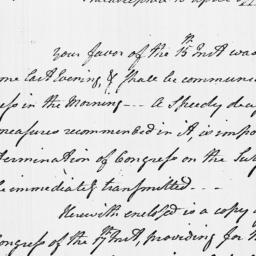 Philadelphia 18 April
Your favor of the 15th Inst was
me last Evening, & shall be communic
ess in the Morning --- A Speedy de
measures recommended in it, is impo
termination of Congress on the Sub
be immediately transmitted ---
Herewith enclosed is a copy o
Congress of the 17th Inst, providing for th